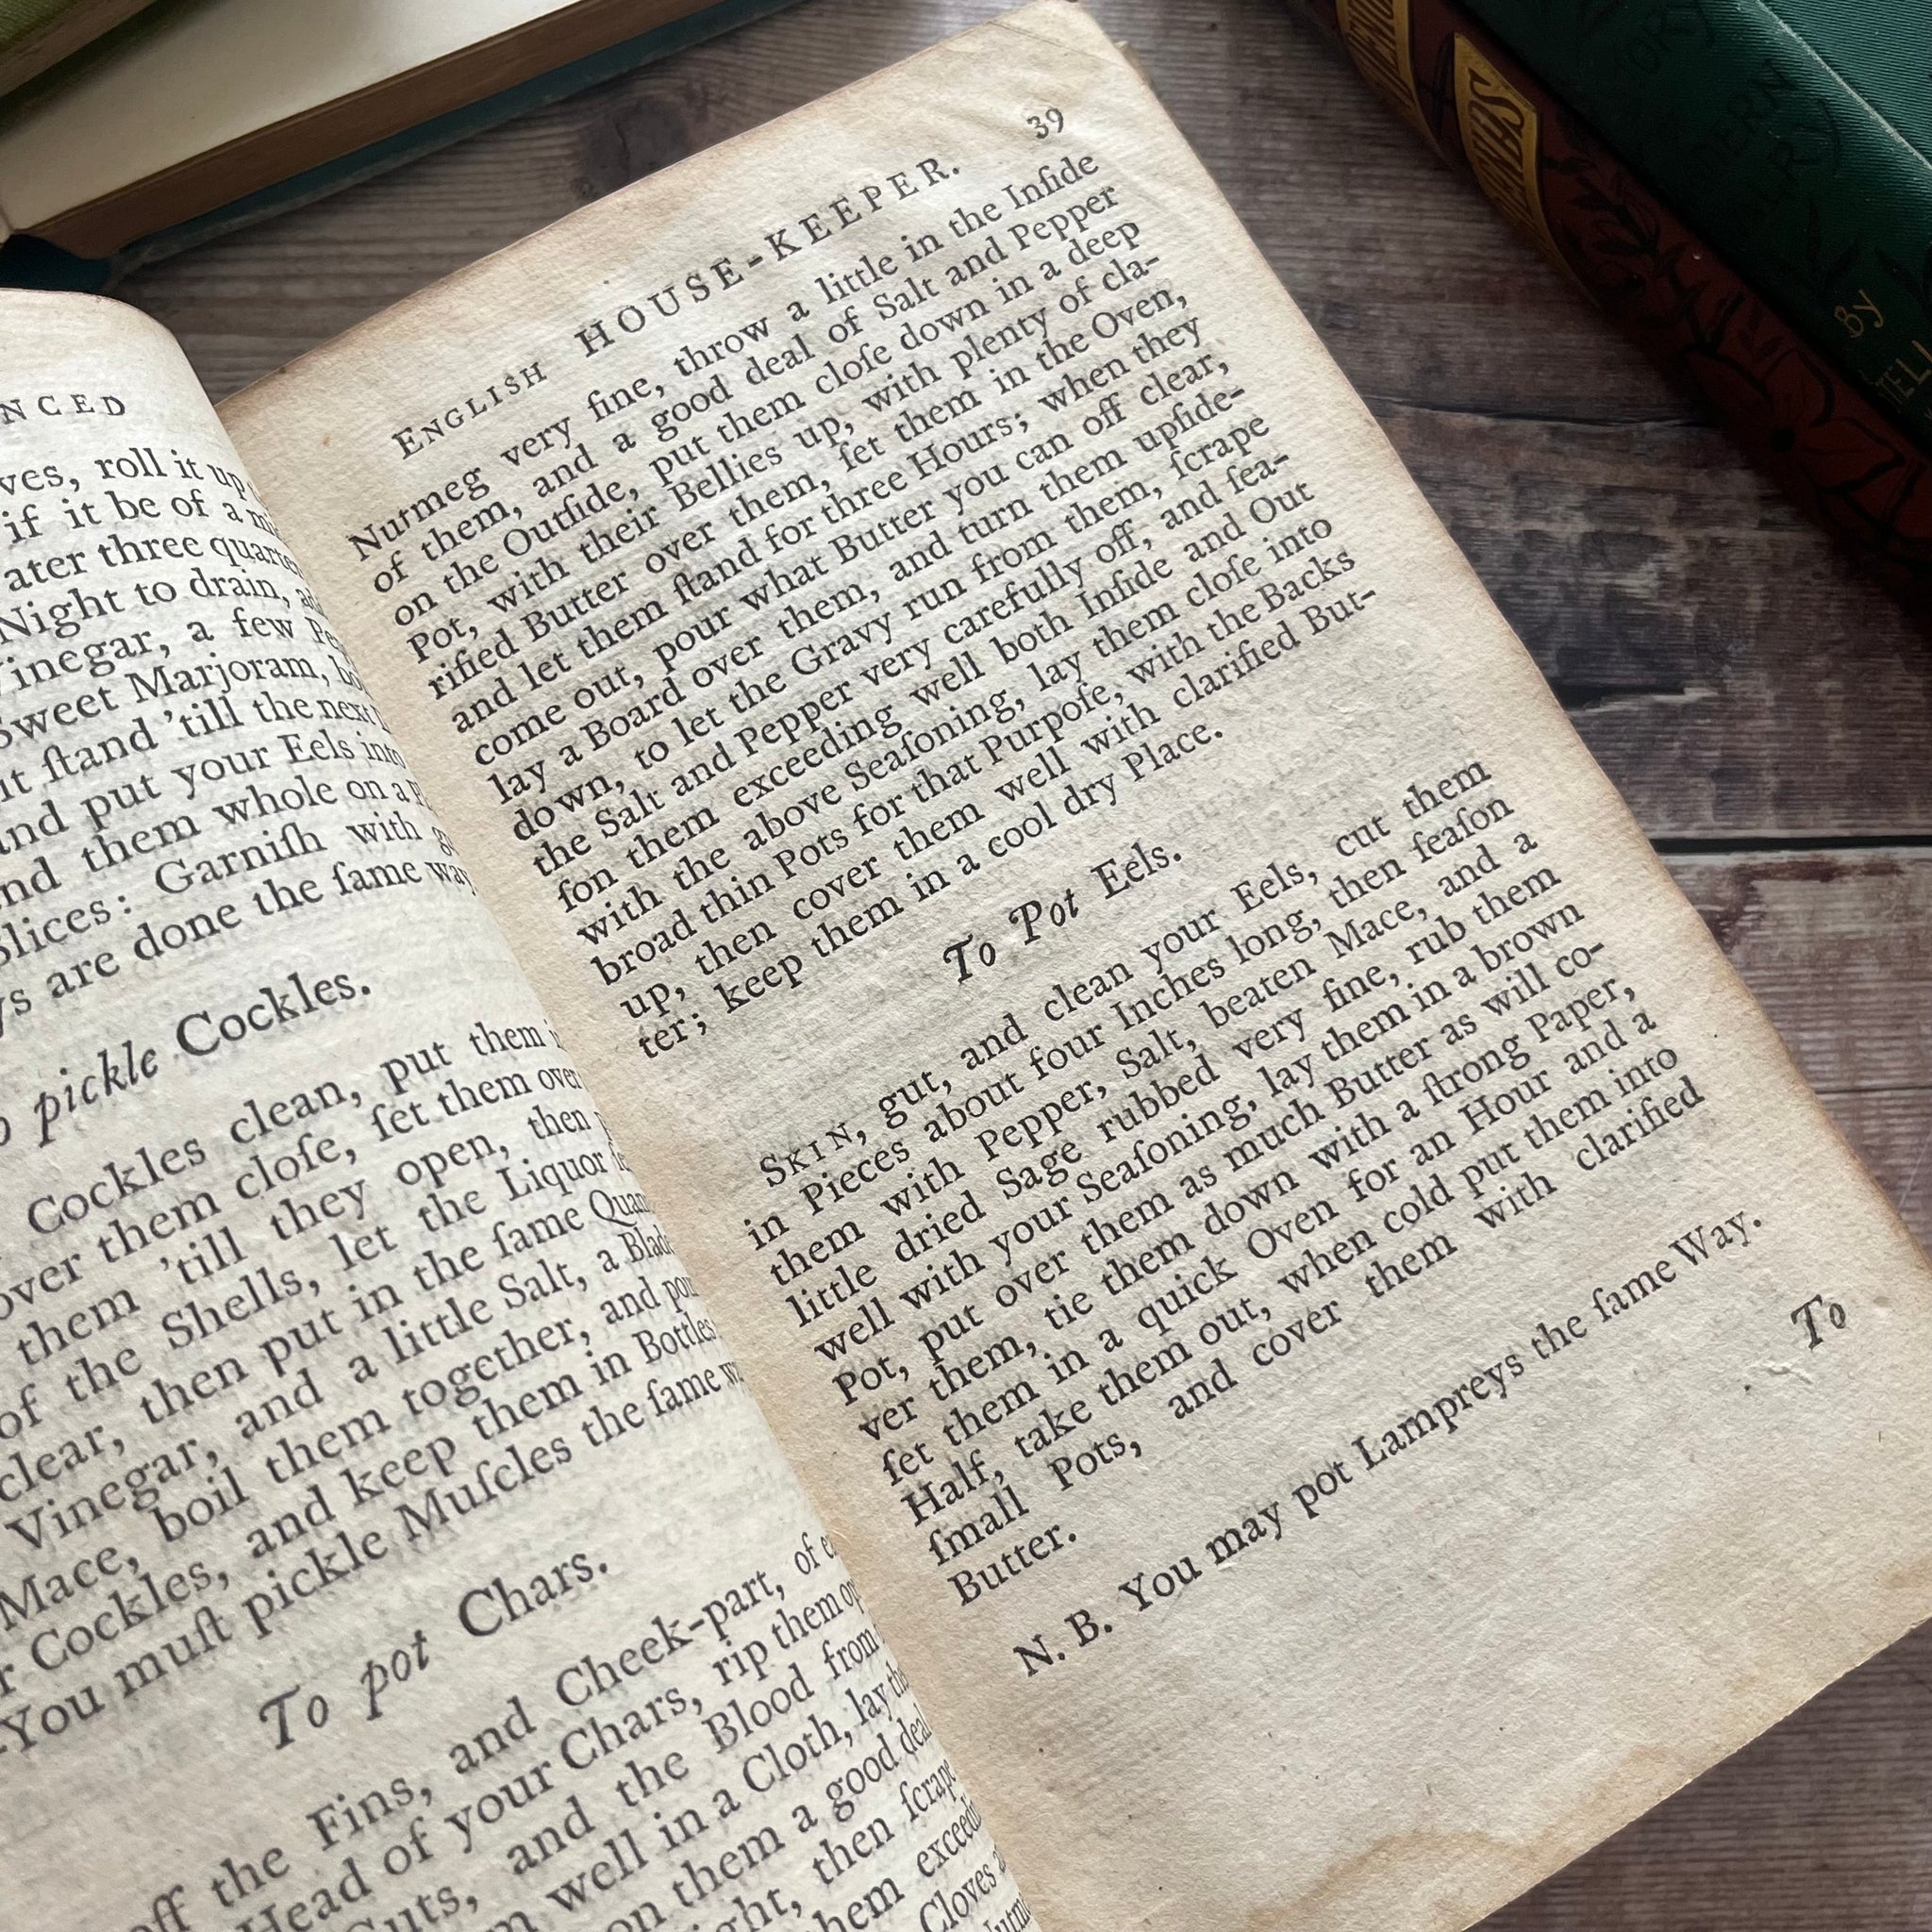 NCED
ves, roll it up
if it be of a
ater three
Night to drain,
Vinegar, a few
Sweet Marjoram,
ſtand 'till the next
and put your Eels into
them whole on a
Slices: Garniſh with
are done the ſame way
pickle Cockles.
Cockles clean, put them
over them cloſe, ſet them over
them 'till they open, then
of the Shells, let the Liquor
clear, then put in the ſame
Vinegar, and a little Salt, a
Mace, boil them together, and
Cockles, and keep them in Bottles
You muſt pickle Muſcles the ſame
To pot Chars.
off the Fins, and Cheek-part, of
Head of your Chars, rip them
Guts, and the Blood from
well in a Cloth, lay
on them a good deal
then ſcrape
them
Cloves
ENGLISH HOUSE-KEEPER. 39
Nutmeg very fine, throw a little in the Inſide
of them, and a good deal of Salt and Pepper
on the Outſide, put them cloſe down in a deep
Pot, with their Bellies up, with plenty of cla-
rified Butter over them, ſet them in the Oven,
and let them ſtand for three Hours; when they
come out, pour what Butter you can off clear,
lay a Board over them, and turn them upſide-
down, to let the Gravy run from them, ſcrape
the Salt and Pepper very carefully off, and ſea-
ſon them exceeding well both Inſide and Out
with the above Seaſoning, lay them cloſe into
broad thin Pots for that Purpoſe, with the Backs
up, then cover them well with clarified But-
ter; keep them in a cool dry Place.
To Pot Eels.
SKIN, gut, and clean your Eels, cut them
in Pieces about four Inches long, then ſeaſon
them with Pepper, Salt, beaten Mace, and a
little dried Sage rubbed very fine, rub them
well with your Seaſoning, lay them in a brown
Pot, put over them as much Butter as will co-
ver them, tie them down with a ſtrong Paper,
ſet them in a quick Oven for an Hour and a
Half, take them out, when cold put them into
ſmall Pots, and cover them with clarified
Butter.
N. B. You may pot Lampreys the ſame Way.
To
By